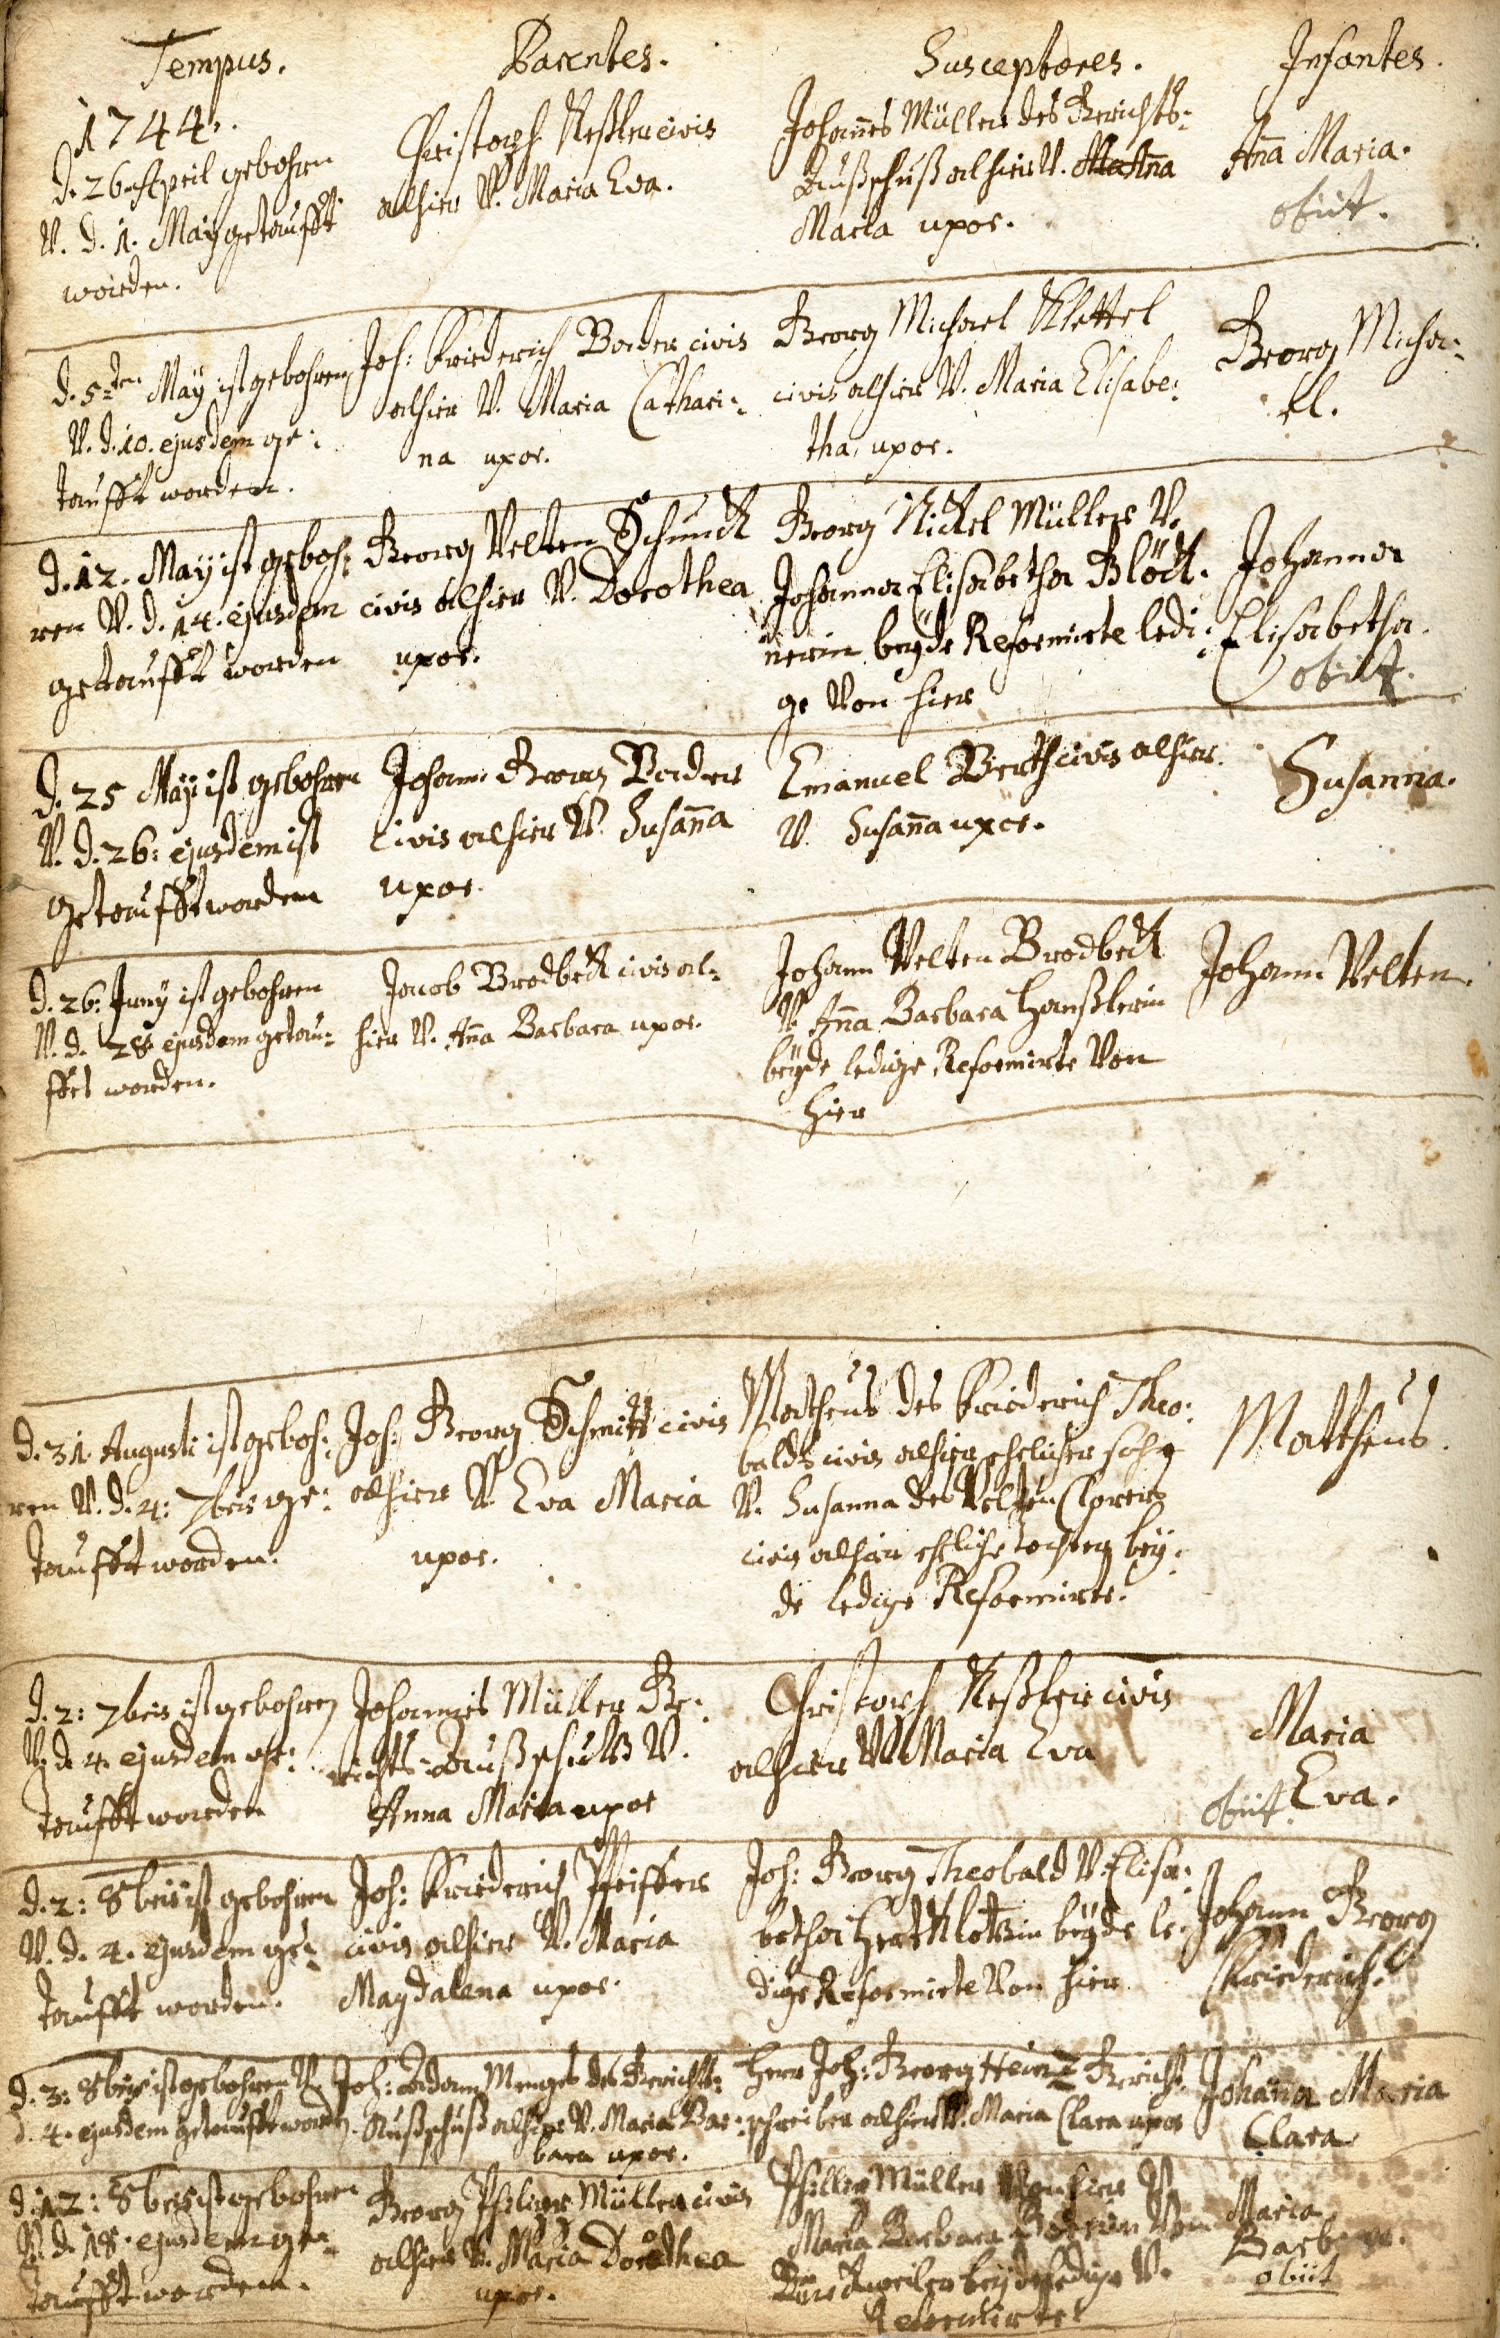 Tempus.
Parentes.
Susceptores.
Infantes.
1744.
d. 26. April gebohren
V. d. 1. Maÿ getaufft
worden.
Christoph Keßler civis
alhier V. Maria Eva.
Johannes Müller des Gerichts-
Außschuß alhier V. Anna
Maria uxor.
Aña Maria.
obiit.
d. 5ten Maÿ ist gebohren
V. d. 10. ejusdem ge-
taufft worden.
Joh: Friederich Bader civis
alhier V. Maria Cathari-
na uxor.
Georg Michael Klettel
civis alhier V. Maria Elisabe-
tha, uxor.
Georg Micha-
el.
d. 12. Maÿ ist geboh-
ren V. d. 14. ejusdem
getaufft worden
Georg Velten Schunck
civis alhier V. Dorothea
uxor.
Georg Nickel Müller V.
Johanna Elisabetha Blöck-
nerin beÿde Reformirte ledi-
ge Von hier
Johanna
Elisabetha.
obiit.
d. 25 Maÿ ist gebohren
V. d. 26: ejusdem ist
getaufft worden
Johann Georg Bader
civis alhier V. Susaña
uxor.
Emanuel Werth civis alhier.
V. Susaña uxor.
Susanna.
d. 26. Junÿ ist gebohren
V. d. 28. ejusdem getau-
fft worden.
Jacob Brodbeck civis al-
hier V. Aña Barbara uxor.
Johann Velten Brodbeck
V. Aña Barbara Hanßlerin
beÿde ledige Reformirte Von
hier
Johann Velten.
d. 31. Augusti ist geboh-
ren V. d. 4: 7bris ge-
taufft worden.
Joh: Georg Schmitt civis
alhier V. Eva Maria
uxor.
Matheus des Friederich Theo-
balds civis alhier ehelicher sohn
V. Susanna des Velten
civis alhier ehliche tochter beÿ-
de ledige Reformirte.
Mattheus.
d. 2: 7bris ist gebohren
V. d. 4. ejusdem ge-
taufft worden
Johannes Müller Ge-
richts-Außschuß V.
Anna Maria uxor
Christoph Keßler civis
alhier V. Maria Eva
Maria
obiit. Eva.
d. 2: 8bris ist gebohren
V. d. 4. ejusdem ge-
taufft worden.
Joh: Friederich Pfeiffer
civis alhier V. Maria
Magdalena uxor.
Joh: Georg Theobald V. Elisa-
betha Hertklotzin beÿde le-
dige Reformirte Von hier.
Johann Georg
Friederich.
d. 3: 8bris ist gebohren V.
d. 4. ejusdem getaufft worden.
Joh: Adam Menges des Gerichts-
Außschuß alhier V. Maria Bar-
bara uxor.
Herr Joh: Georg Heintz Gericht-
schreiber alhier V. Maria Clara uxor
Johaña Maria
Clara
d. 12: 8bris ist gebohren
V. d. 18. ejusdem ge-
taufft worden.
Georg Philips Müller civis
alhier V. Maria Dorothea
uxor.
Philips Müller Von hier V.
Maria Barbara Von
beÿde ledige V.
Reformirte
Maria
Barbara.
obiit